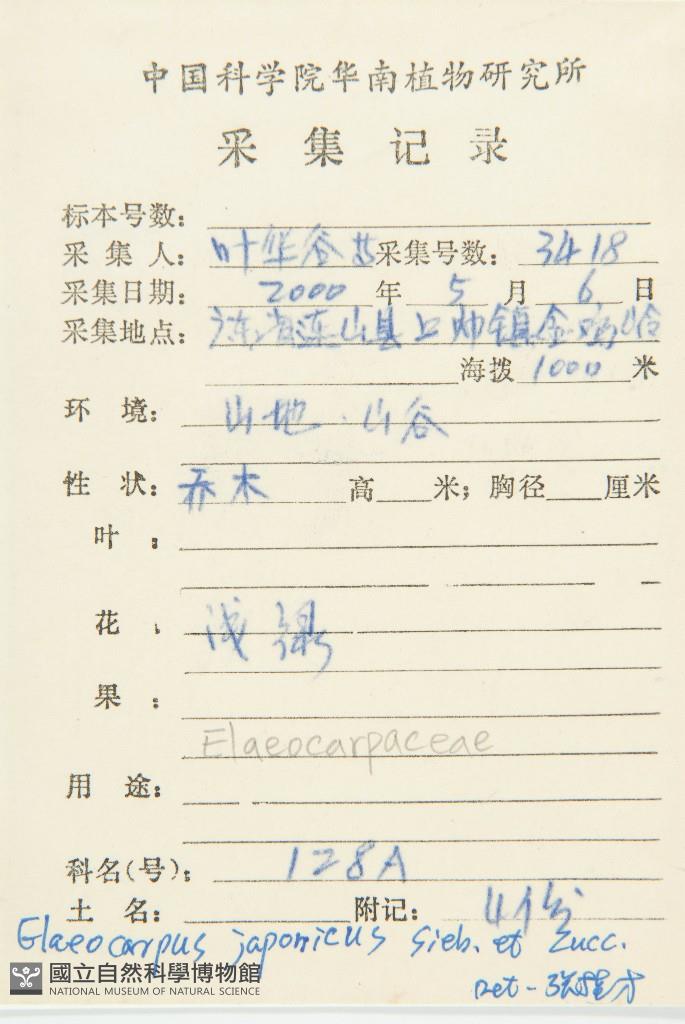 中国科学院华南植物研究所
采集记录
标本号数:
采集人: 叶华谷 采集号数: 3418
采集日期: 2000 年 5 月 6 日
采集地点: 连山县上帅镇金鸡
海拨 1000 米
环境: 山地.山谷
性状: 乔木 高 米; 胸径 厘米
叶:
花: 浅绿
果:
Elaeocarpaceae
用途:
科名(号): 128A
土名: 附记:
Elaeocarpus japonicus Sieb. et Zucc.
國立自然科學博物館
NATIONAL MUSEUM OF NATURAL SCIENCE
Det-